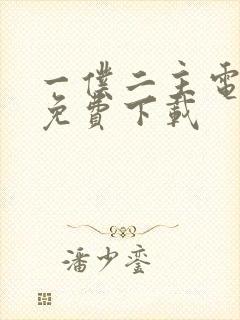 一僕二主電
免費下載
潘少鑾